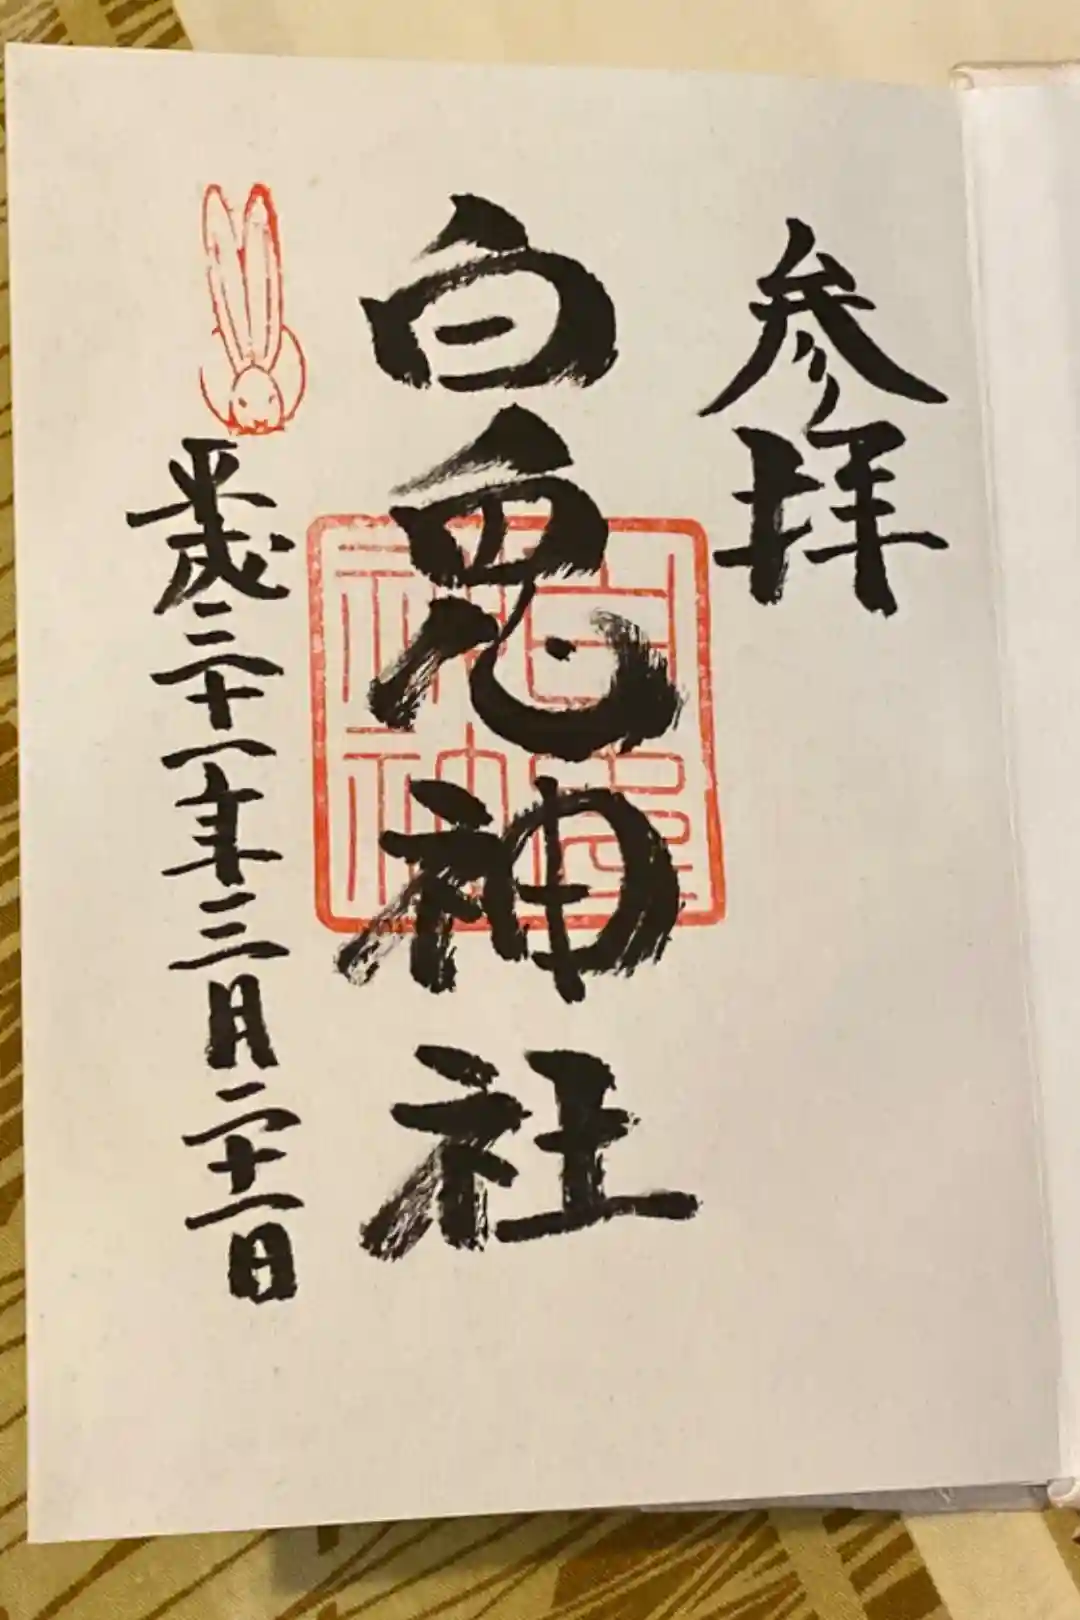 参拝
白兎神社
平成三十一年三月二十一日